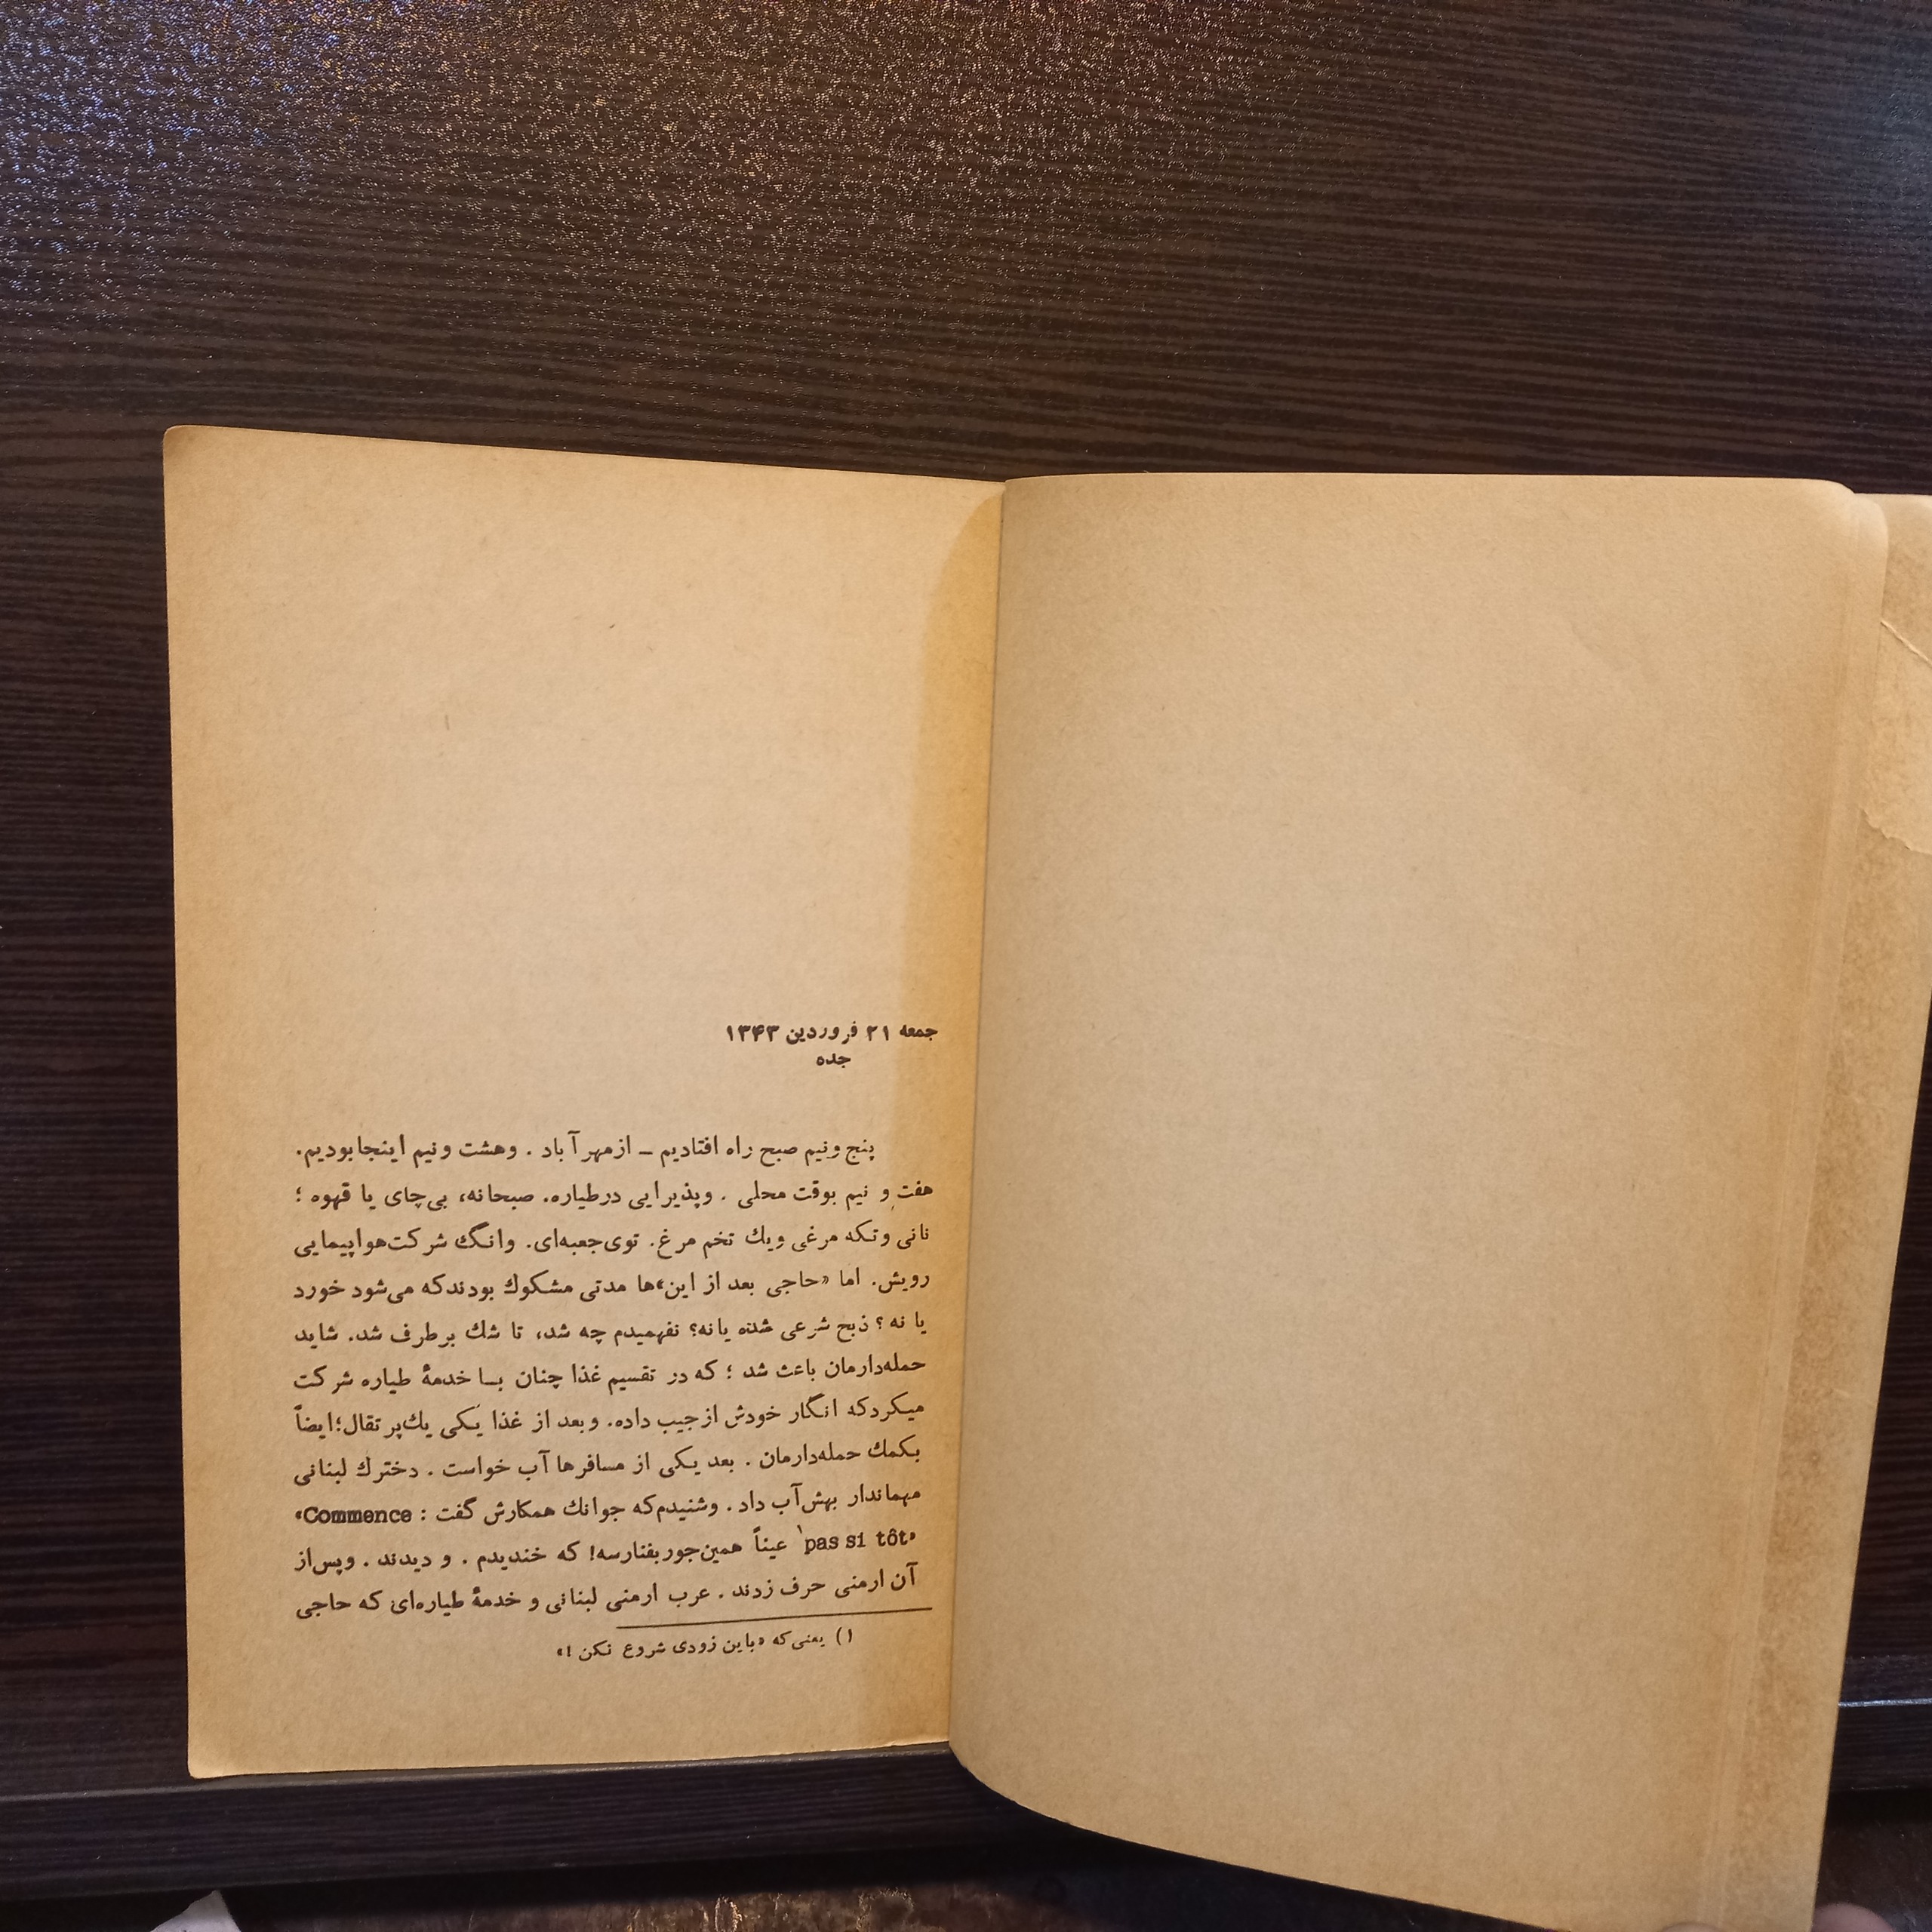 جمعه ۲۱ فروردین ۱۳۴۳
جده
پنج ونیم صبح راه افتادیم ـ ازمهر آباد . وهشت ونیم اینجابودیم.
هفت و نیم بوقت محلی . وپذیرایی درطیاره. صبحانه، بی‌چای یا قهوه ؛
نانی وتکه مرغی ویك تخم مرغ. توی‌جعبه‌ای. وانگ شرکت‌هواپیمایی
رویش. اما «حاجی بعد از این»ها مدتی مشکوك بودندکه می‌شود خورد
یا نه ؟ ذبح شرعی شده یانه؟ نفهمیدم چه شد، تا شك برطرف شد. شاید
حمله‌دارمان باعث شد ؛ که در تقسیم غذا چنان بـا خدمهٔ طیاره شرکت
میکردکه انگار خودش ازجیب داده. وبعد از غذا یکی یك‌پرتقال؛ایضاً
بکمك حمله‌دارمان . بعد یکی از مسافرها آب خواست . دخترك لبنانی
مهماندار بهش‌آب داد . وشنیدم‌که جوانك همکارش گفت : «Commence
pas si tôt»۱ عیناً همین‌جوربفنارسه! که خندیدم . و دیدند . وپس‌از
آن ارمنی حرف زدند . عرب ارمنی لبنانی و خدمهٔ طیاره‌ای که حاجی
۱) یعنی‌که «باین زودی شروع نکن !»